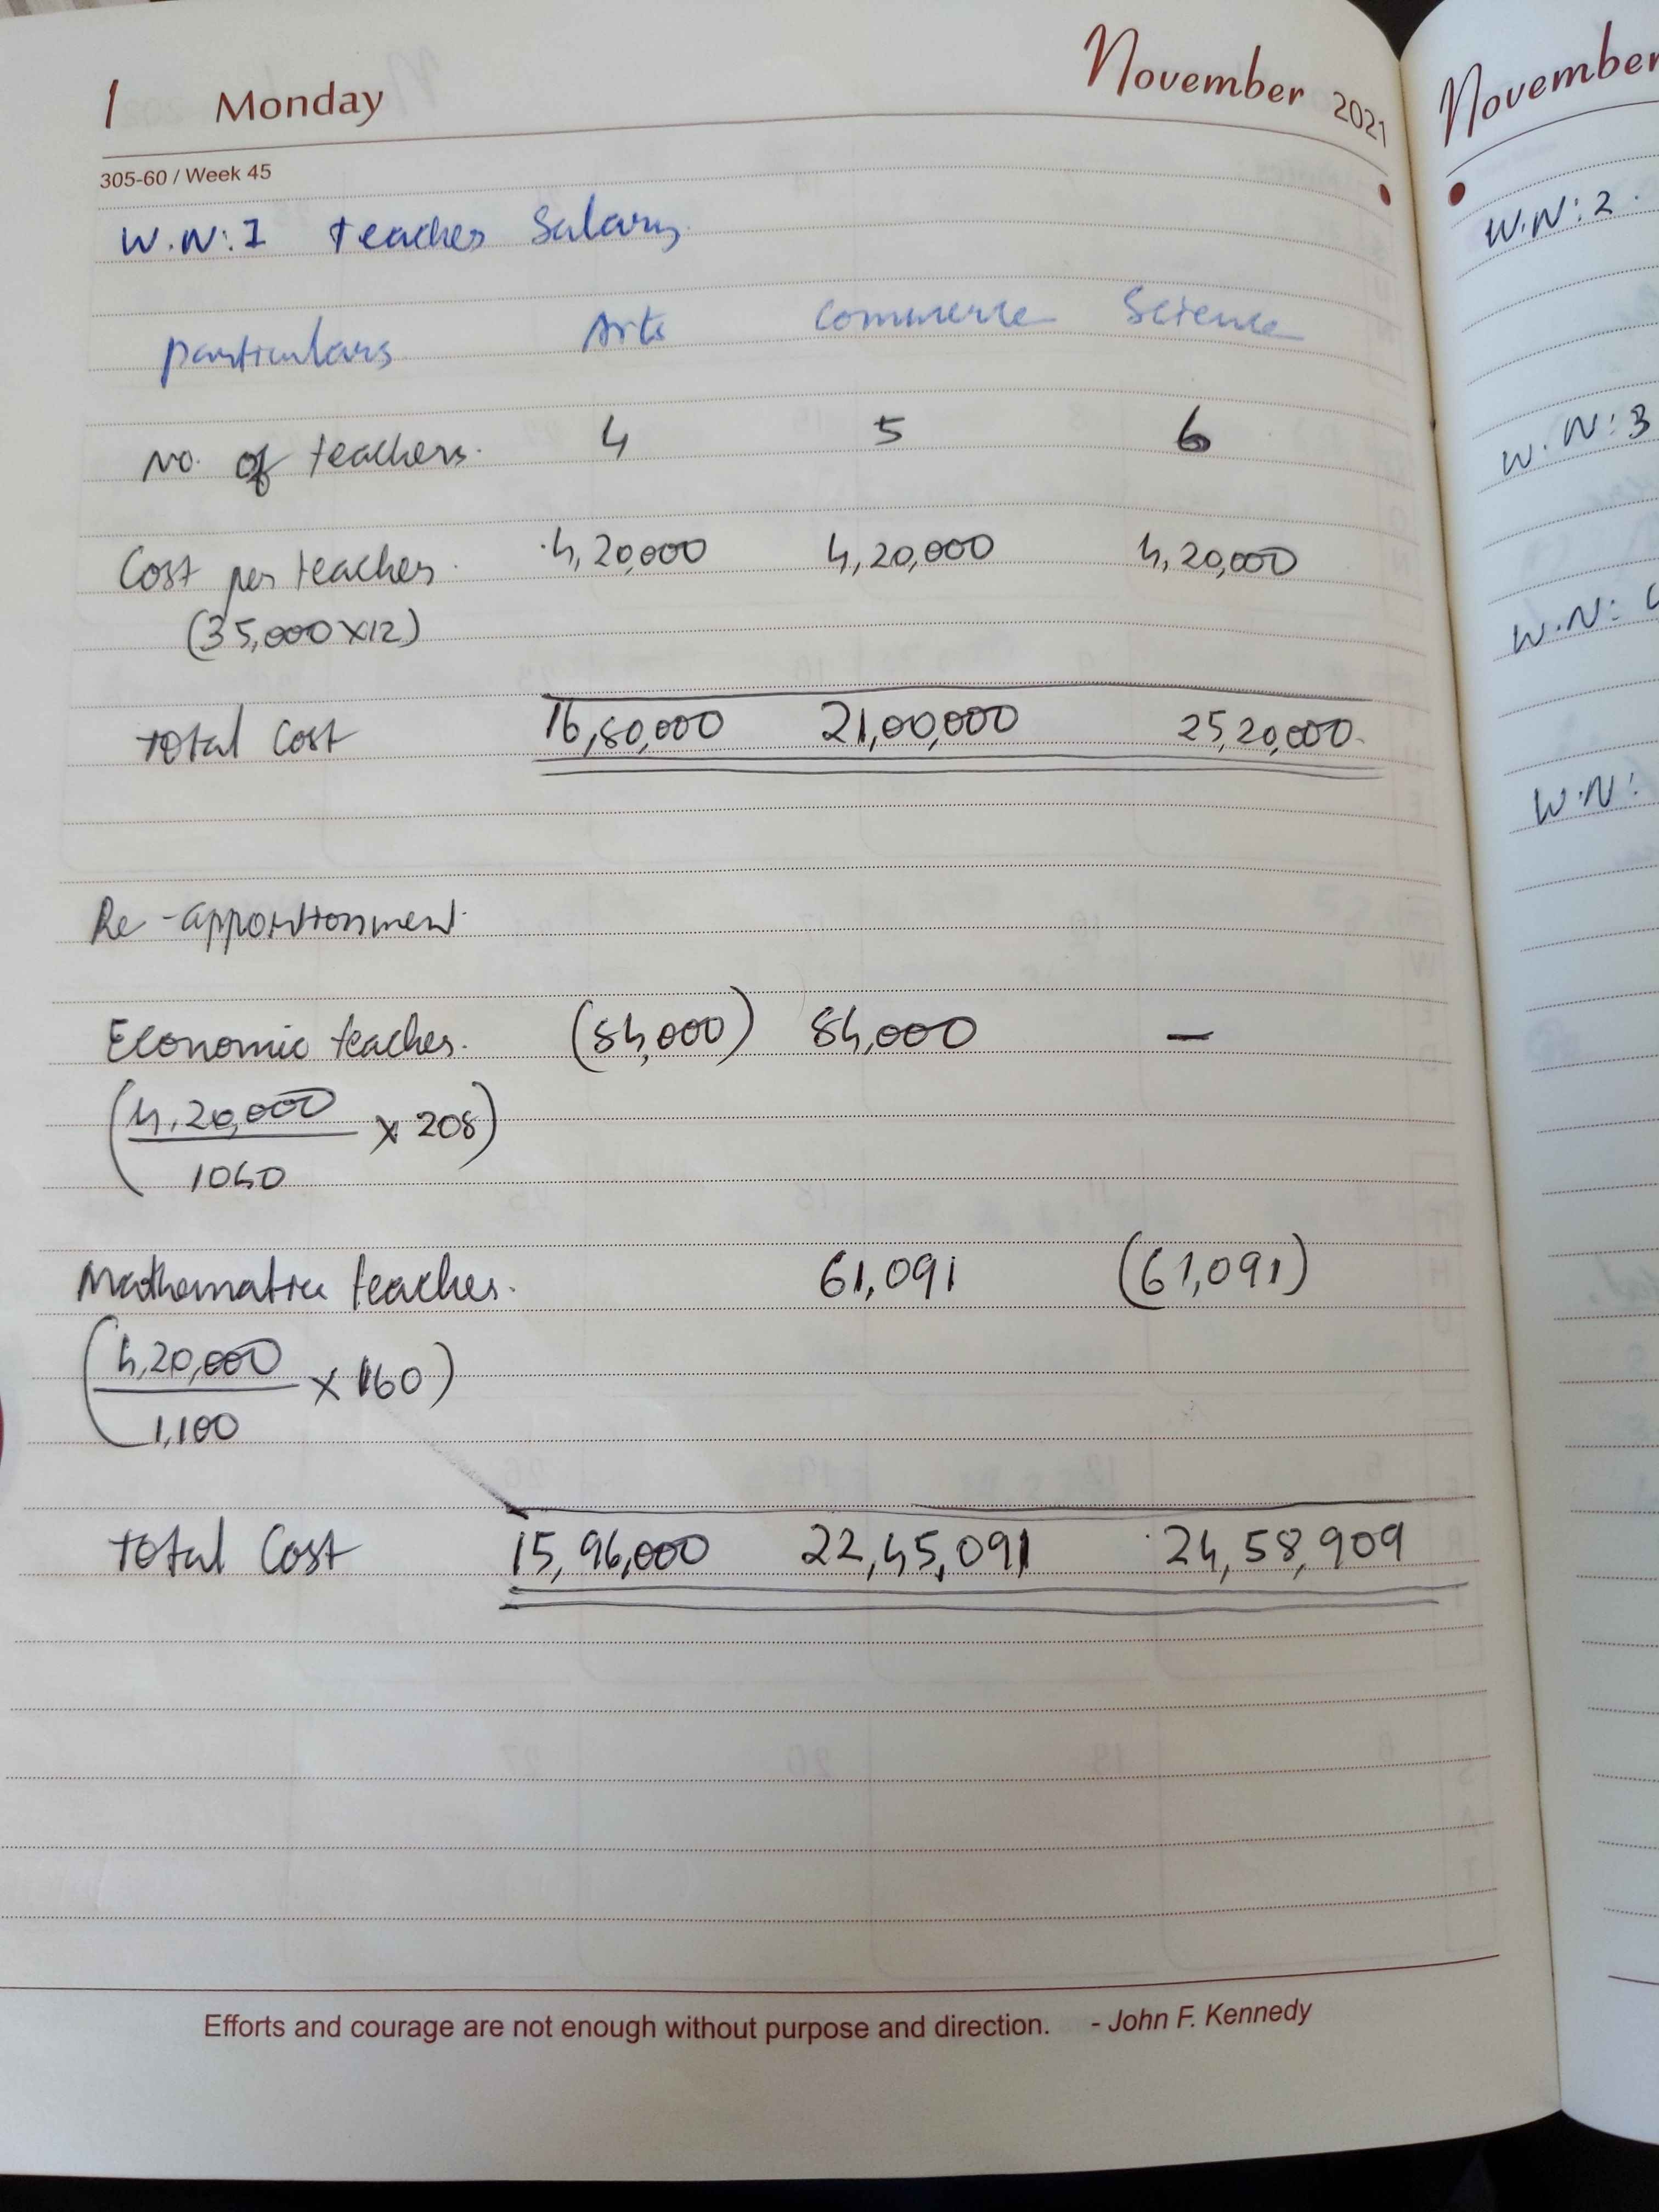 1 Monday November 2021
305-60 / Week 45
W.N:1 Teacher Salary.
Particulars Arts Commerce Science
No. of teachers. 4 5 6
Cost per teacher. 4,20,000 4,20,000 4,20,000
(35,000 X12)
Total Cost 16,80,000 21,00,000 25,20,000
Re-apportionment.
Economic teacher. (84,000) 84,000 —
(4,20,000 × 208)
1040
Mathematics teacher. 61,091 (61,091)
(4,20,000 × 160)
1,100
Total Cost 15,96,000 22,45,091 24,58,909
Efforts and courage are not enough without purpose and direction. - John F. Kennedy
November
W.N:2.
W.N:3
W.N:
W.N: